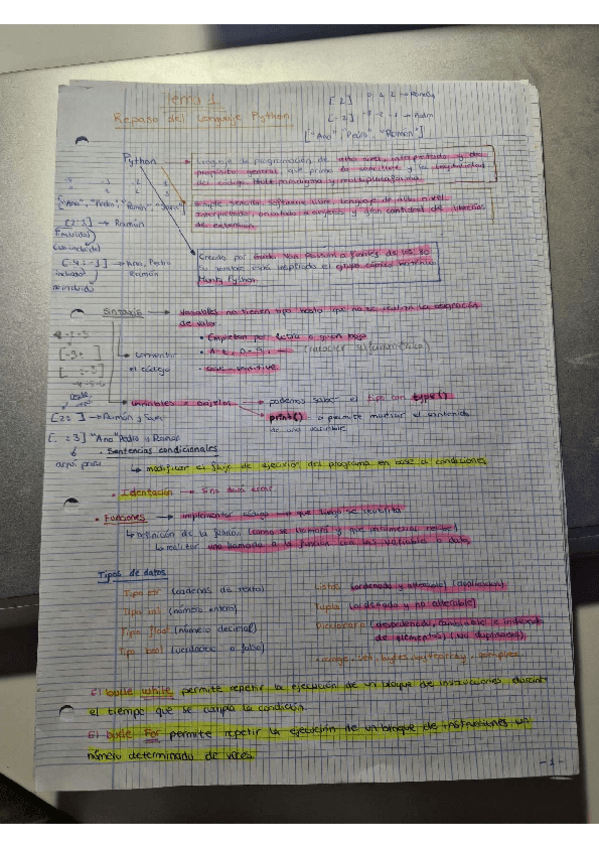 Tema 1
Repaso del lenguaje Python
[2] 0 1 2 → Ramón
["Ana", "Pedro", "Ramón"]
Python
Lenguaje de programación de alto nivel, interpretado y de
propósito general que prima la y la legibilidad
del código. Multiparadigma y multiplataforma.
Simple, sencillo, software libre, lenguaje de alto nivel
interpretado, orientado a objetos y gran cantidad de librerías
de extensión.
["Ana", "Pedro", "Ramón", "Sara"]
[2:3] → Ramón
Creado por Guido Van Rossum a finales de los 80
Su nombre está inspirado el grupo cómico británico
Monty Python.
Ana, Pedro
Ramón
Sintaxis → Variables no tienen tipo hasta que no se realiza la asignación
de valor
• Empiezan por letra o guion bajo
(caracter alfanumérico)
• case-sensitive.
comentar
el código
Variables = objetos → podemos saber el tipo con type()
print() → permite mostrar el contenido
de una variable
[2: ] → Ramón y Sara
[ :3] "Ana" Pedro y Ramón
• Sentencias condicionales
↳ modificar el flujo de ejecución del programa en base a condiciones
• Identación → Sino dará error
• Funciones → implementar código → que luego se reutiliza
↳ Definición de la función (como se llamará y que parámetros recibe)
↳ realizar una llamada a la función con las variables o datos
Tipos de datos
Tipo str (cadenas de texto)
Tipo int (número entero)
Tipo float (número decimal)
Tipo bool (verdadero o falso)
Listas (ordenado y alterable) (duplicados)
Tupla (ordenado y no alterable)
Diccionario (desordenado, cambiable e indexado
de elementos) (No duplicados)
• range, set, bytes, bytearray, complex
El bucle while permite repetir la ejecución de un bloque de instrucciones durante
el tiempo que se cumpla la condición
El bucle For permite repetir la ejecución de un bloque de instrucciones un
número determinado de veces.
- 1 -